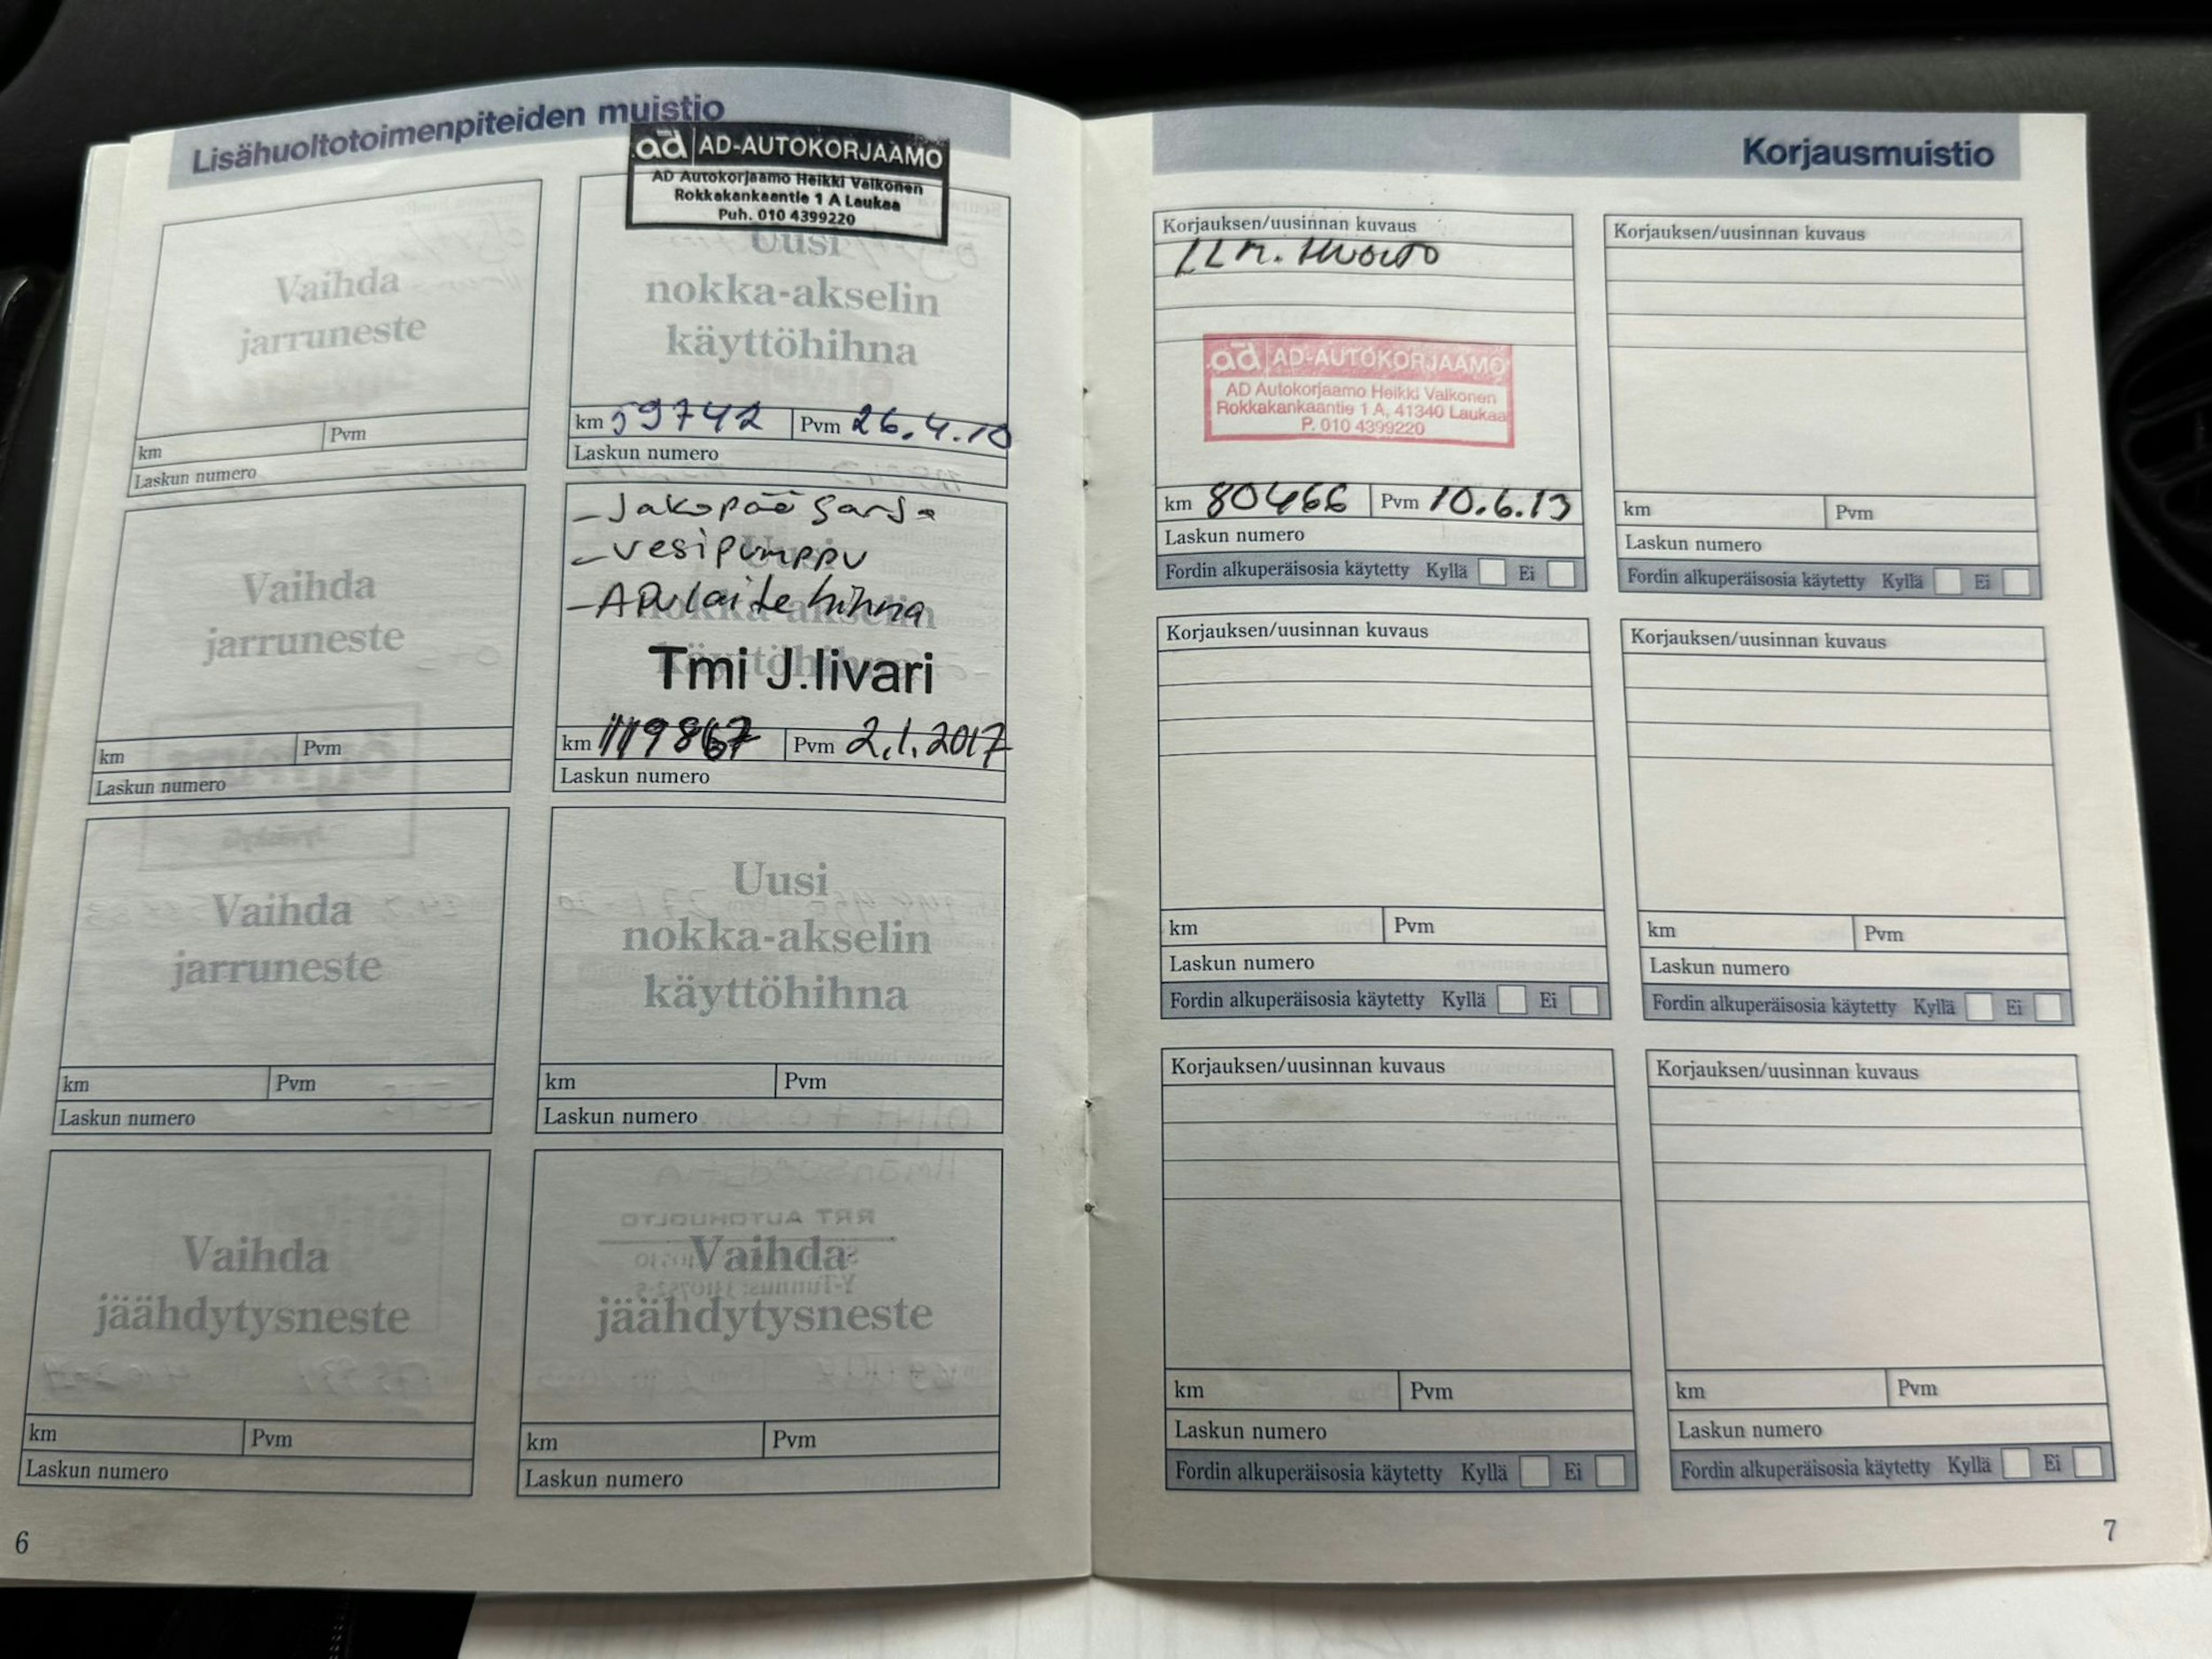 Lisähuoltotoimenpiteiden muistio
ad AD-AUTOKORJAAMO
AD Autokorjaamo Heikki Valkonen
Rokkakankaantie 1 A Laukaa
Puh. 010 4399220
Vaihda
jarruneste
km
Pvm
Laskun numero
Uusi
nokka-akselin
käyttöhihna
km 59742 Pvm 26.4.10
Laskun numero
Vaihda
jarruneste
km
Pvm
Laskun numero
- Jakopää sarja
- vesipumppu
- Apulaite hihna
Tmi J.Iivari
km 119867 Pvm 2.1.2017
Laskun numero
Vaihda
jarruneste
km
Pvm
Laskun numero
Uusi
nokka-akselin
käyttöhihna
km
Pvm
Laskun numero
Vaihda
jäähdytysneste
km
Pvm
Laskun numero
Vaihda
jäähdytysneste
km
Pvm
Laskun numero
6
Korjausmuistio
Korjauksen/uusinnan kuvaus
huolto
ad AD-AUTOKORJAAMO
AD Autokorjaamo Heikki Valkonen
Rokkakankaantie 1 A, 41340 Laukaa
P. 010 4399220
km 80466 Pvm 10.6.13
Laskun numero
Fordin alkuperäisosia käytetty Kyllä Ei
Korjauksen/uusinnan kuvaus
km
Pvm
Laskun numero
Fordin alkuperäisosia käytetty Kyllä Ei
Korjauksen/uusinnan kuvaus
km
Pvm
Laskun numero
Fordin alkuperäisosia käytetty Kyllä Ei
Korjauksen/uusinnan kuvaus
km
Pvm
Laskun numero
Fordin alkuperäisosia käytetty Kyllä Ei
Korjauksen/uusinnan kuvaus
km
Pvm
Laskun numero
Fordin alkuperäisosia käytetty Kyllä Ei
Korjauksen/uusinnan kuvaus
km
Pvm
Laskun numero
Fordin alkuperäisosia käytetty Kyllä Ei
7